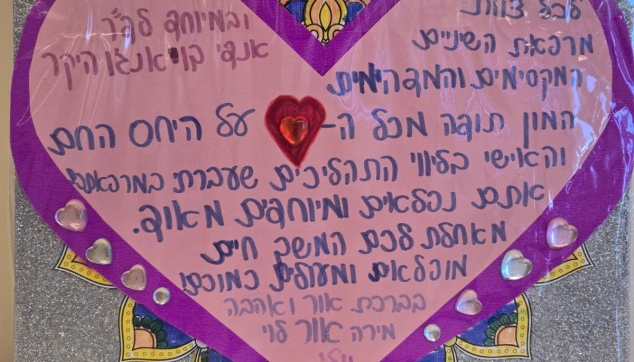 לכל צוות
מרפאת השיניים
המקסימים והמדהימים
ובמיוחד לד"ר
היקר
המון תודה מכל ה-
על היחס החם
והאישי בליווי התהליכים שעברתי במרפאתכם
אתם נפלאים ומיוחדים מאוד.
מאחלת לכם המשך חיים
מופלאים ומעולים כמוכם!
בברכת אור ואהבה
מירה אור לוי